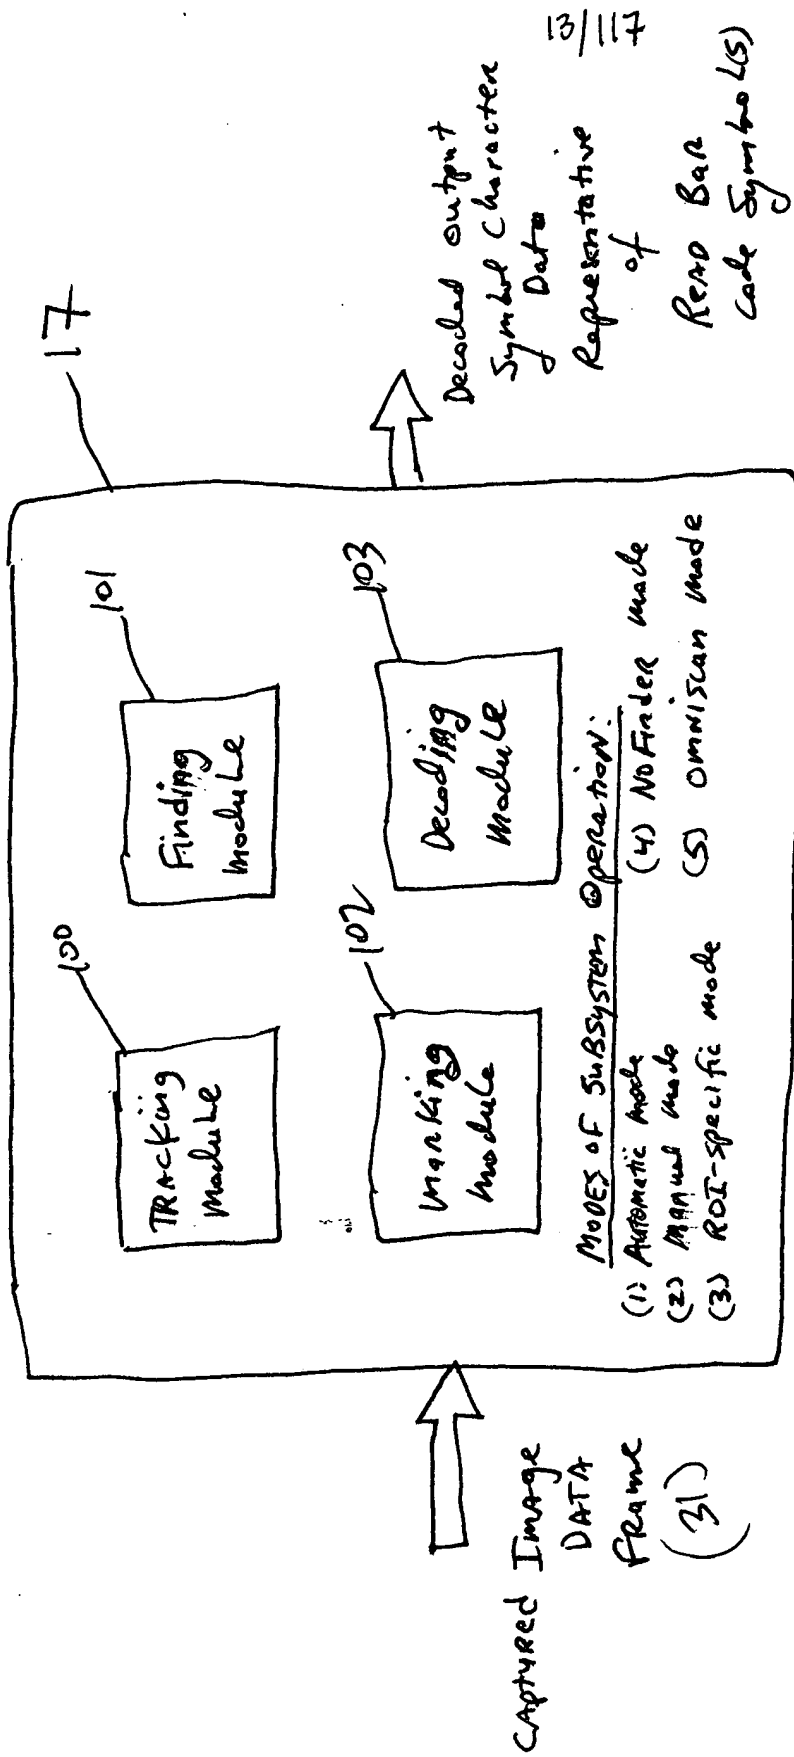 13/117
17
100
TRACKing
Module
101
Finding
Module
102
Marking
Module
103
Decoding
Module
MODES OF SUBSYSTEM OPERATION:
(1) Automatic Mode
(2) Manual Mode
(3) ROI-specific Mode
(4) NOFinder Mode
(5) OMNISCAN Mode
CAPTURED Image
DATA
FRAME
(31)
Decoded output
Symbol Character
Data
Representative
of
READ BAR
Code Symbol(s)